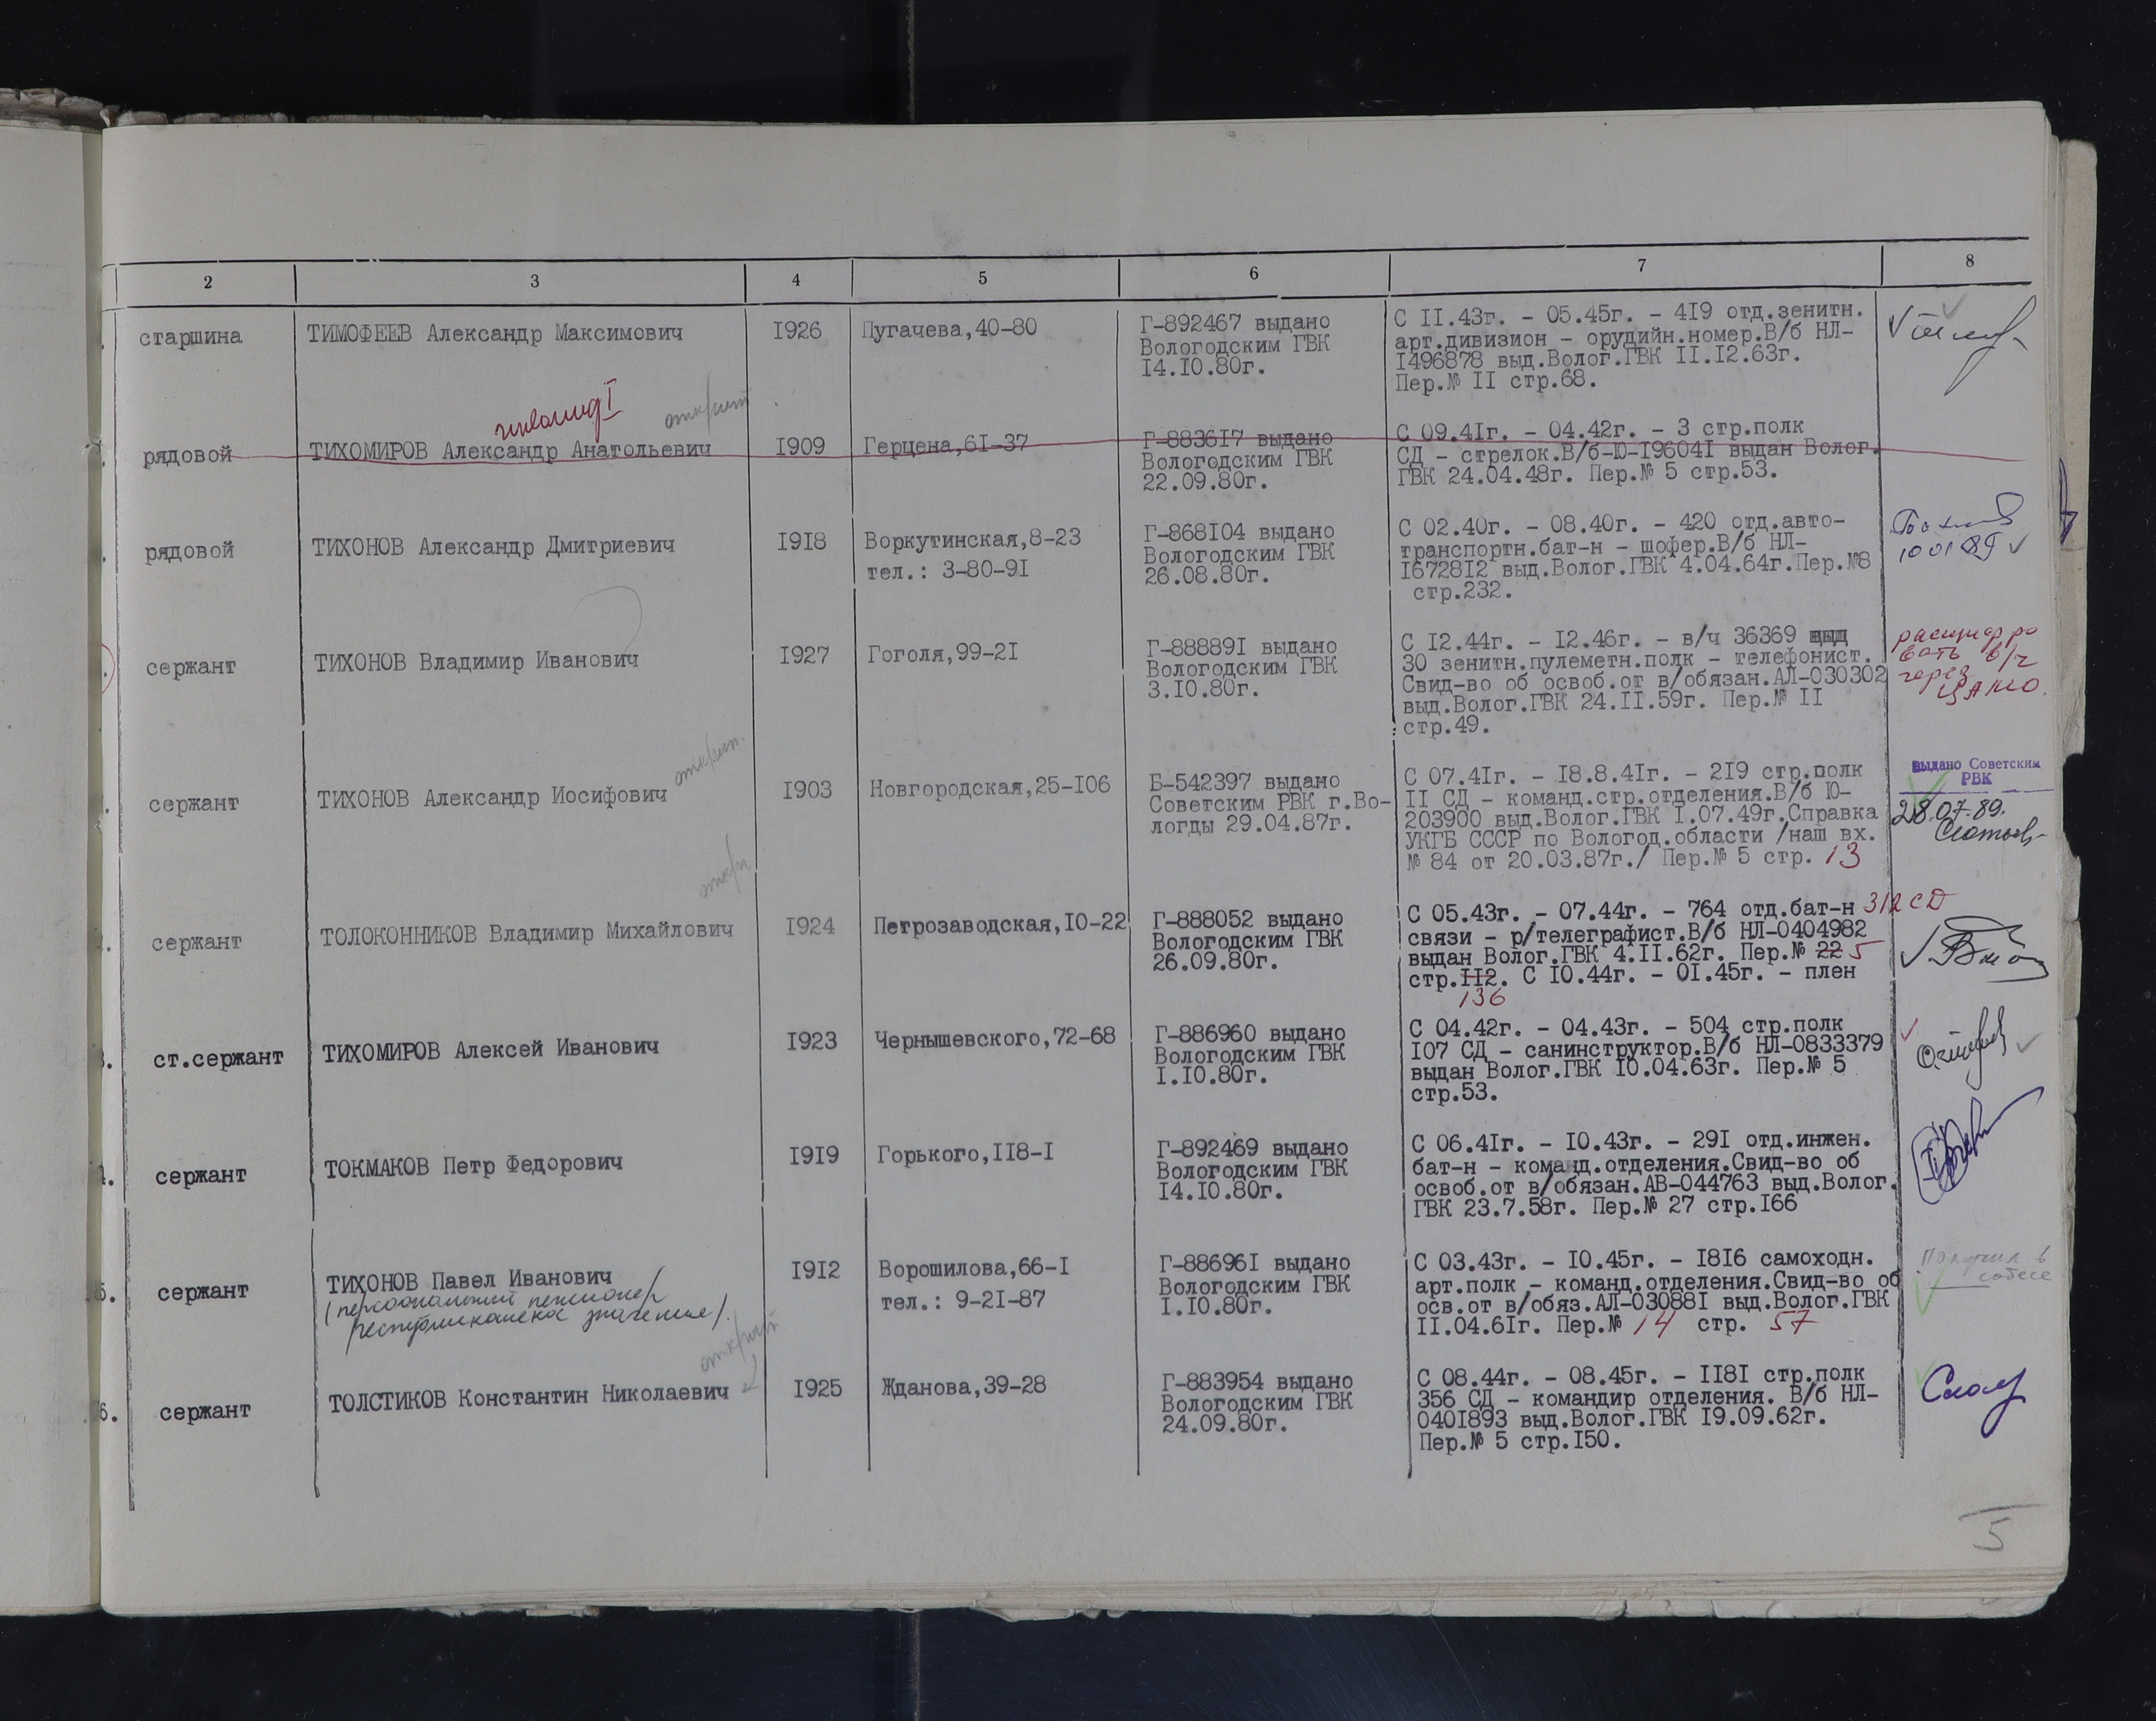 2 3 4 5 6 7 8
старшина
ТИМОФЕЕВ Александр Максимович
1926
Пугачева,40-80
Г-892467 выдано
Вологодским ГВК
14.10.80г.
С 11.43г. - 05.45г. - 419 отд.зенитн.
арт.дивизион - орудийн.номер.В/б НЛ-
1496878 выд.Волог.ГВК 11.12.63г.
Пер.№ 11 стр.68.
инвалид I
открыт
рядовой
ТИХОМИРОВ Александр Анатольевич
1909
Герцена,61-37
Г-883617 выдано
Вологодским ГВК
22.09.80г.
С 09.41г. - 04.42г. - 3 стр.полк
СД - стрелок.В/б-Ю-196041 выдан Волог.
ГВК 24.04.48г. Пер.№ 5 стр.53.
рядовой
ТИХОНОВ Александр Дмитриевич
1918
Воркутинская,8-23
тел.: 3-80-91
Г-868104 выдано
Вологодским ГВК
26.08.80г.
С 02.40г. - 08.40г. - 420 отд.авто-
транспортн.бат-н - шофер.В/б НЛ-
1672812 выд.Волог.ГВК 4.04.64г.Пер.№8
стр.232.
10 01 89
сержант
ТИХОНОВ Владимир Иванович
1927
Гоголя,99-21
Г-888891 выдано
Вологодским ГВК
3.10.80г.
С 12.44г. - 12.46г. - в/ч 36369
30 зенитн.пулеметн.полк - телефонист.
Свид-во об освоб.от в/обязан.АЛ-030302
выд.Волог.ГВК 24.11.59г. Пер.№ 11
стр.49.
расшифро
вать в/ч
через
ЦАМО.
открыт.
сержант
ТИХОНОВ Александр Иосифович
1903
Новгородская,25-106
Б-542397 выдано
Советским РВК г.Во-
логды 29.04.87г.
С 07.41г. - 18.8.41г. - 219 стр.полк
11 СД - команд.стр.отделения.В/б Ю-
203900 выд.Волог.ГВК 1.07.49г.Справка
УКГБ СССР по Вологод.области /наш вх.
№ 84 от 20.03.87г./ Пер.№ 5 стр. 13
выдано Советским
РВК
28.07.89.
сержант
ТОЛОКОННИКОВ Владимир Михайлович
1924
Петрозаводская,10-22
Г-888052 выдано
Вологодским ГВК
26.09.80г.
С 05.43г. - 07.44г. - 764 отд.бат-н 312 СД
связи - р/телеграфист.В/б НЛ-0404982
выдан Волог.ГВК 4.11.62г. Пер.№ 22 5
стр.112. С 10.44г. - 01.45г. - плен
136
ст.сержант
ТИХОМИРОВ Алексей Иванович
1923
Чернышевского,72-68
Г-886960 выдано
Вологодским ГВК
1.10.80г.
С 04.42г. - 04.43г. - 504 стр.полк
107 СД - санинструктор.В/б НЛ-0833379
выдан Волог.ГВК 10.04.63г. Пер.№ 5
стр.53.
сержант
ТОКМАКОВ Петр Федорович
1919
Горького,118-1
Г-892469 выдано
Вологодским ГВК
14.10.80г.
С 06.41г. - 10.43г. - 291 отд.инжен.
бат-н - команд.отделения.Свид-во об
освоб.от в/обязан.АВ-044763 выд.Волог.
ГВК 23.7.58г. Пер.№ 27 стр.166
5.
сержант
ТИХОНОВ Павел Иванович
(персональный пенсионер
республиканское значение).
1912
Ворошилова,66-1
тел.: 9-21-87
Г-886961 выдано
Вологодским ГВК
1.10.80г.
С 03.43г. - 10.45г. - 1816 самоходн.
арт.полк - команд.отделения.Свид-во об
осв.от в/обяз.АЛ-030881 выд.Волог.ГВК
11.04.61г. Пер.№ 14 стр. 57
Получил в
собесе
открыт
6.
сержант
ТОЛСТИКОВ Константин Николаевич
1925
Жданова,39-28
Г-883954 выдано
Вологодским ГВК
24.09.80г.
С 08.44г. - 08.45г. - 1181 стр.полк
356 СД - командир отделения. В/б НЛ-
0401893 выд.Волог.ГВК 19.09.62г.
Пер.№ 5 стр.150.
5